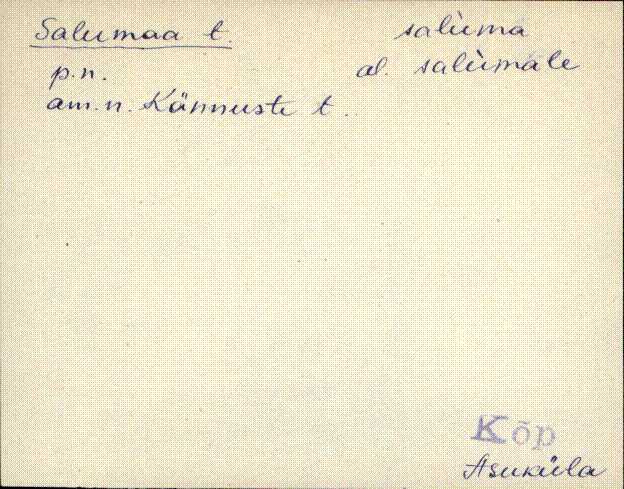 Salumaa t. salùma
p.n. al. salùmale
am.n. Kännuste t.
Kõp
Asuküla